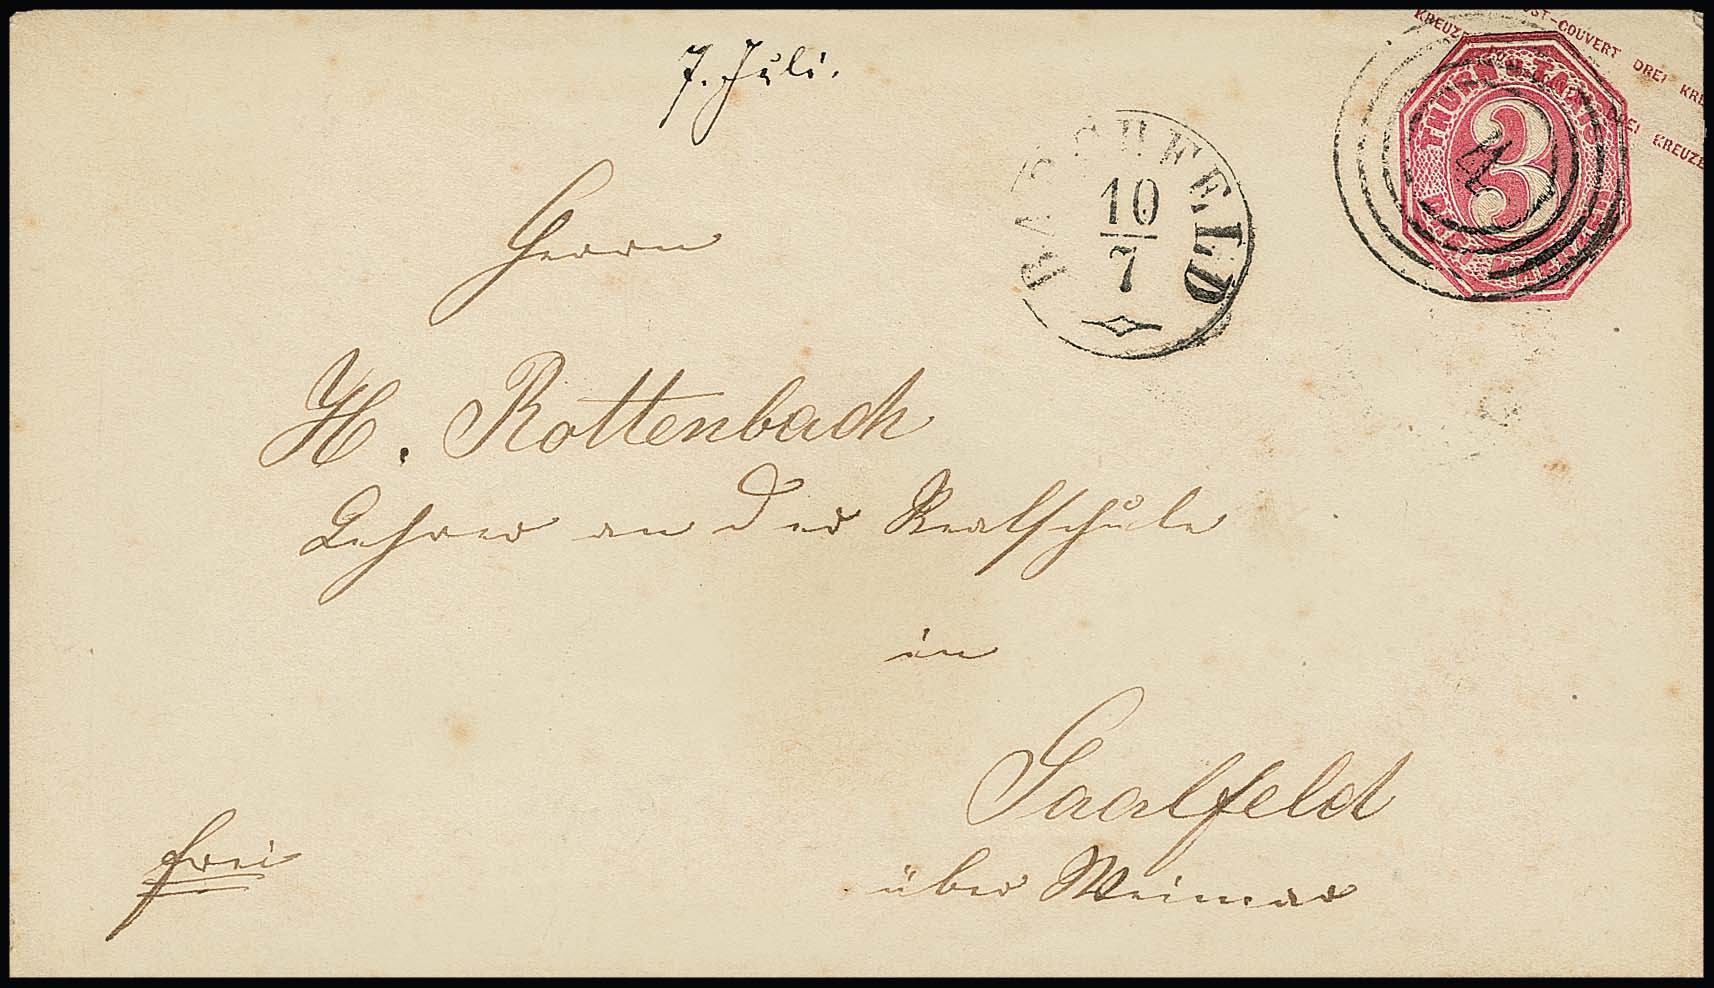 KREUZER POST-COUVERT DREI KRE
DREI KREUZE
THURN U. TAXIS
3
DREI KREUZER
7. Juli.
BARCHFELD
10
7
Herrn
H. Rottenbach
Lehrer an der Realschule
in
Saalfeld
über Weimar
frei